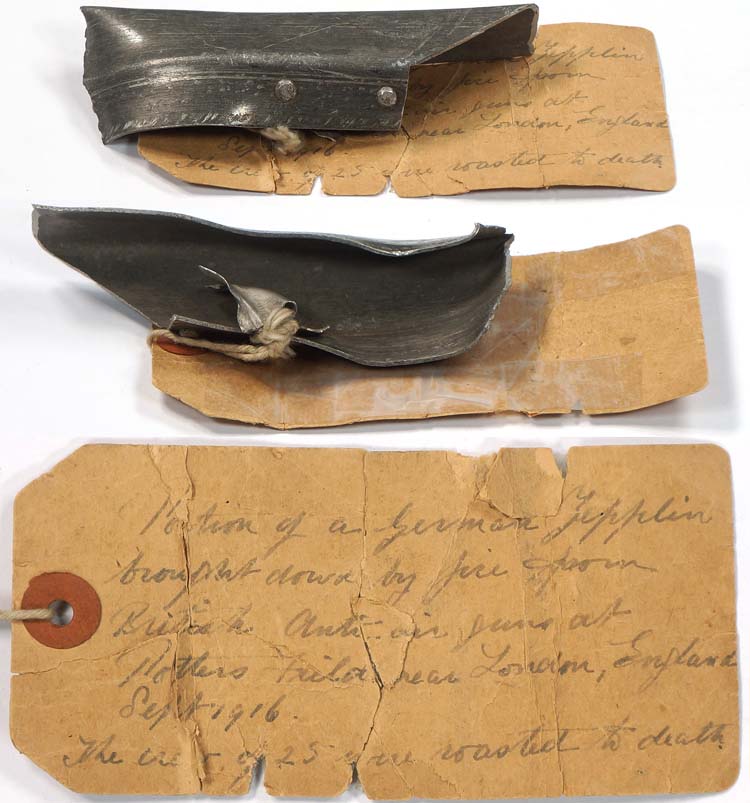 Zepplin
by fire from
air guns at
near London, England
Sept 1916.
The crew of 25 were roasted to death
Portion of a German Zepplin
brought down by fire from
British Anti-air guns at
Potters Field near London, England
Sept 1916.
The crew of 25 were roasted to death